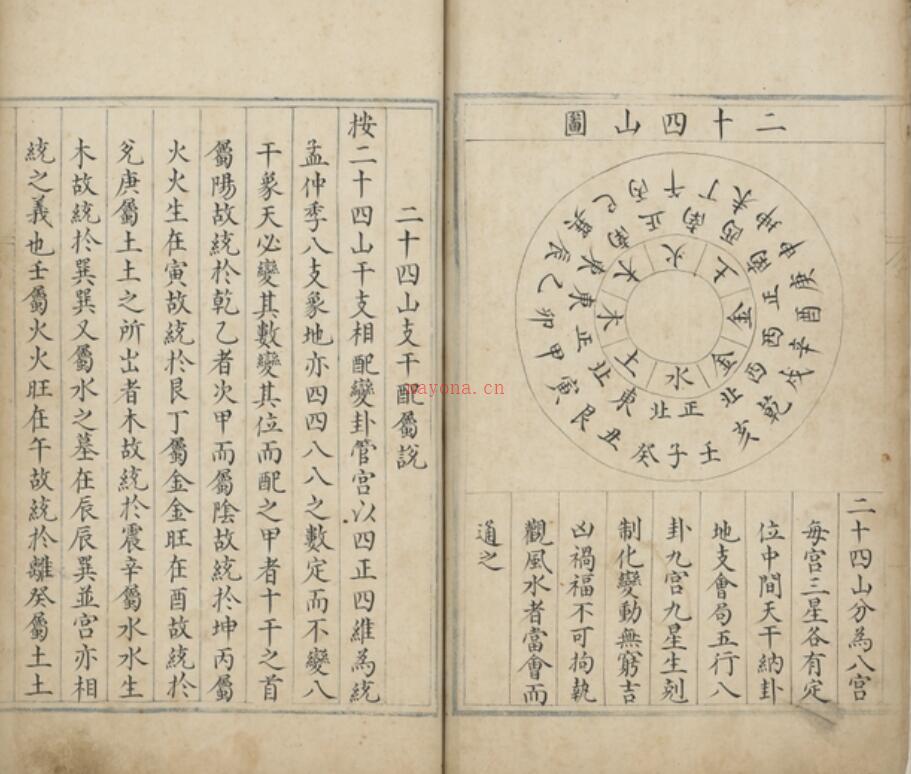 二十四山圖
壬子癸丑艮寅甲卯乙辰巽巳丙午丁未坤申庚酉辛戌乾亥
正北東北正東東南正南西南正西西北
水土木木火土金金
二十四山分為八宮
每宮三星各有定
位中間天干納卦
地支會局五行八
卦九宮九星生剋
制化變動無窮吉
凶禍福不可拘執
觀風水者當會而
通之
二十四山支干配屬說
按二十四山干支相配變卦管宮以四正四維為統
孟仲季八支象地亦四四八八之數定而不變八
干象天必變其數變其位而配之甲者十干之首
屬陽故統於乾乙者次甲而屬陰故統於坤丙屬
火火生在寅故統於艮丁屬金金旺在酉故統於
兌庚屬土土之所出者木故統於震辛屬水水生
木故統於巽巽又屬水之墓在辰辰巽並宮亦相
統之義也壬屬火火旺在午故統於離癸屬土土
nayona.cn